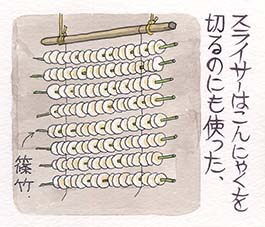 スライサーはこんにゃくを
切るのにも使った、
篠竹